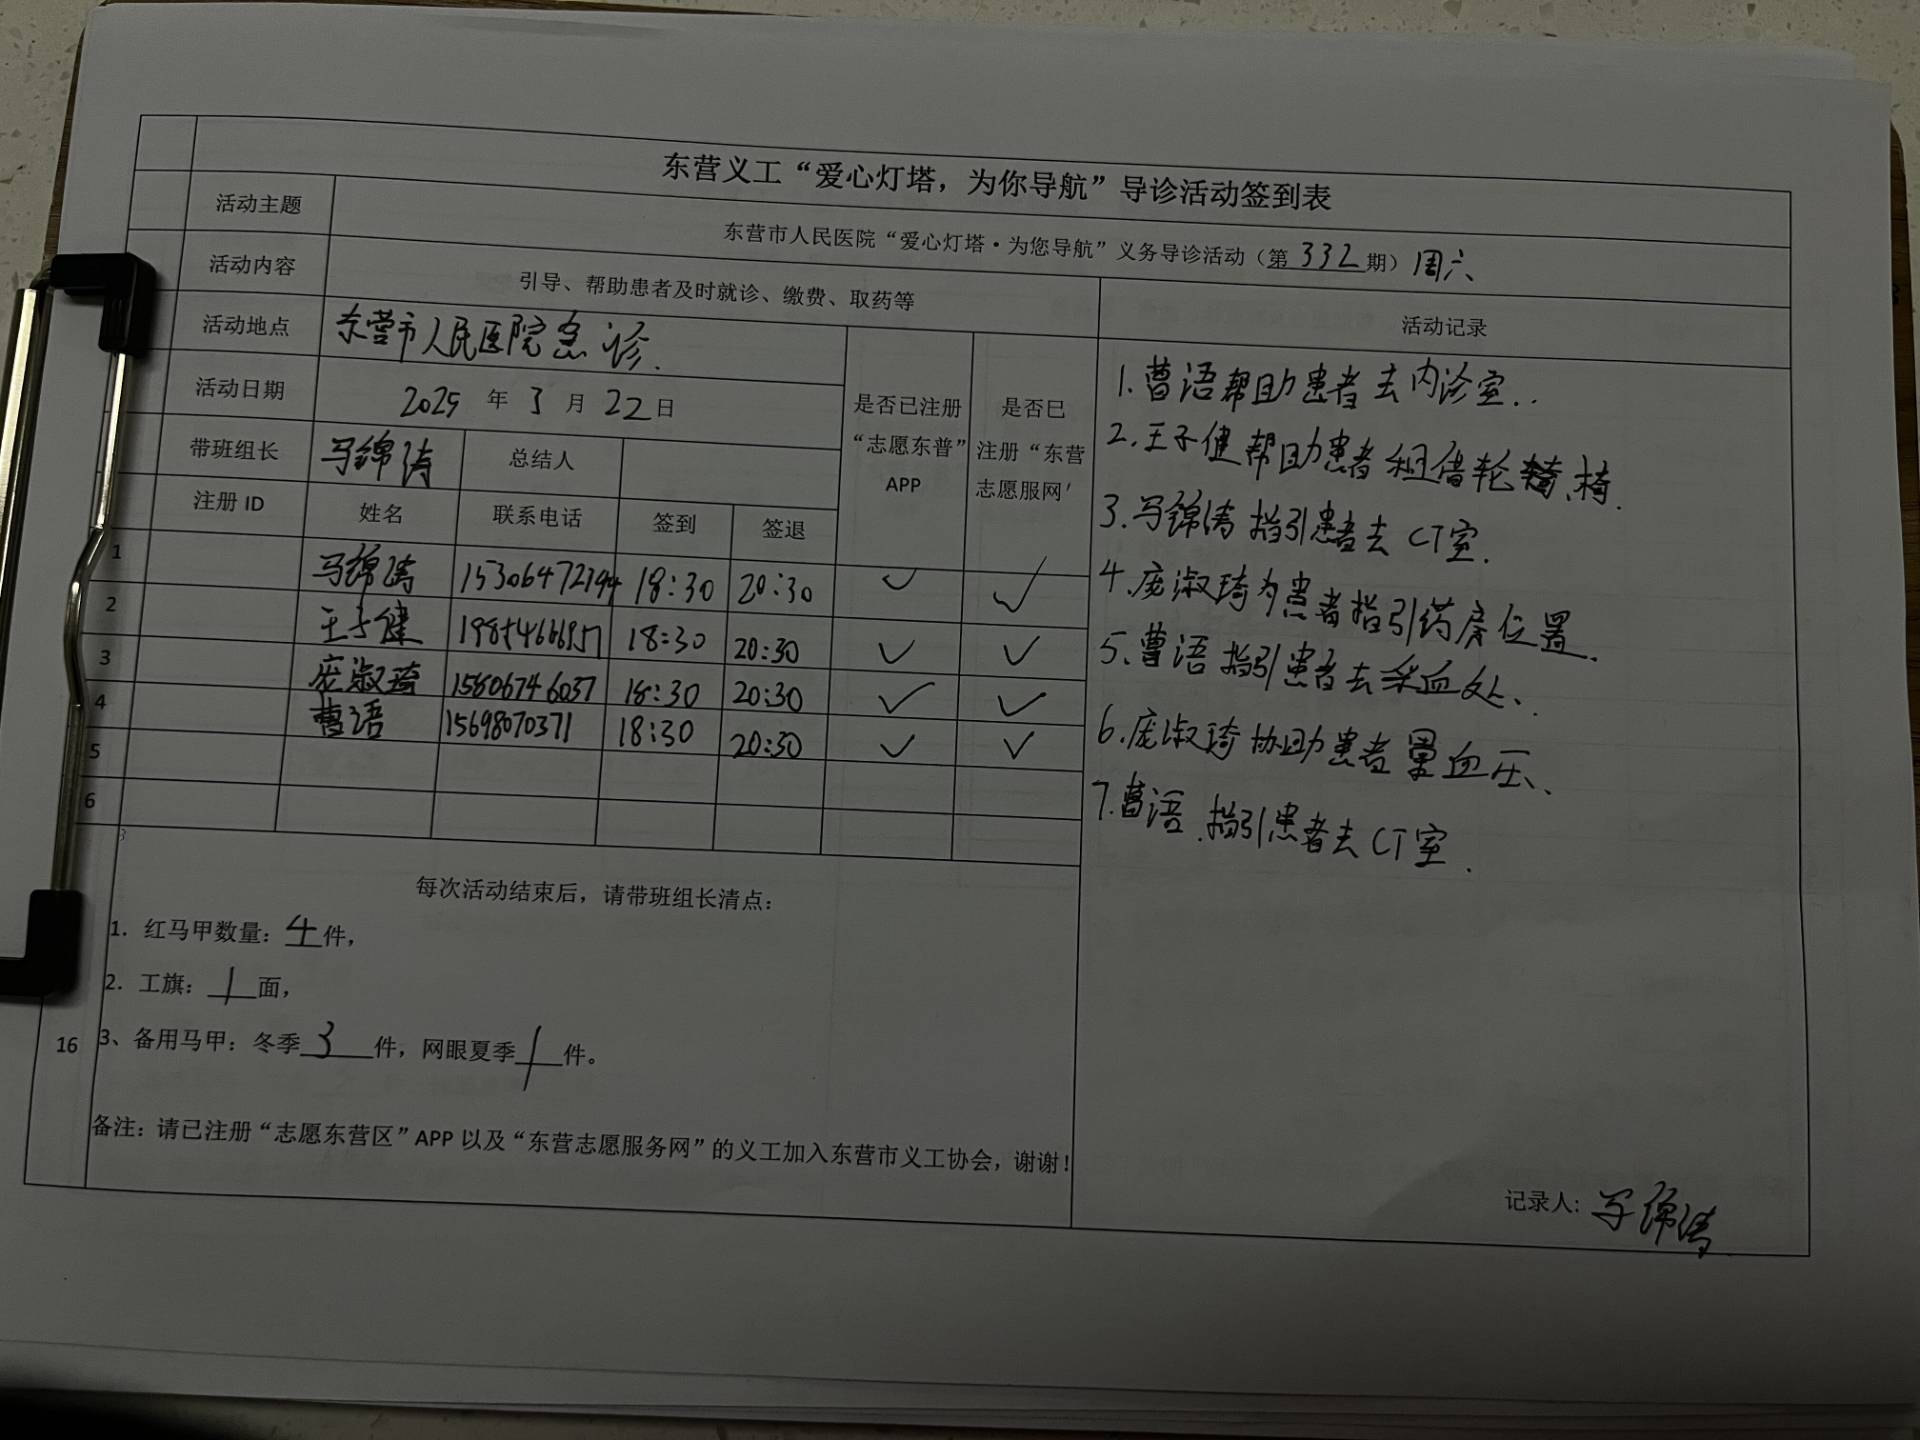 东营义工“爱心灯塔，为你导航”导诊活动签到表
活动主题 东营市人民医院“爱心灯塔·为您导航”义务导诊活动（第332期）周六
活动内容 引导、帮助患者及时就诊、缴费、取药等
活动记录
活动地点 东营市人民医院急诊.
活动日期 2025年3月22日
是否已注册
“志愿东普”
APP
是否已
注册“东营
志愿服网'
带班组长 马锦涛 总结人
注册 ID 姓名 联系电话 签到 签退
1 马锦涛 15306472194 18:30 20:30 ✓ ✓
2 王子健 18:30 20:30 ✓ ✓
3 庞淑琦 15806746037 18:30 20:30 ✓ ✓
4 曹语 15698070371 18:30 20:30 ✓ ✓
5
6
每次活动结束后，请带班组长清点：
1. 红马甲数量：4件，
2. 工旗：1面，
16
3、备用马甲：冬季3件，网眼夏季1件。
备注：请已注册“志愿东营区”APP 以及“东营志愿服务网”的义工加入东营市义工协会，谢谢！
1.曹语帮助患者去内诊室..
2.王子健帮助患者租借轮椅.
3.马锦涛指引患者去CT室.
4.庞淑琦为患者指引药房位置.
5、曹语指引患者去采血处、.
6.庞淑琦协助患者量血压、.
7.曹语.指引患者去CT室.
记录人：马锦涛